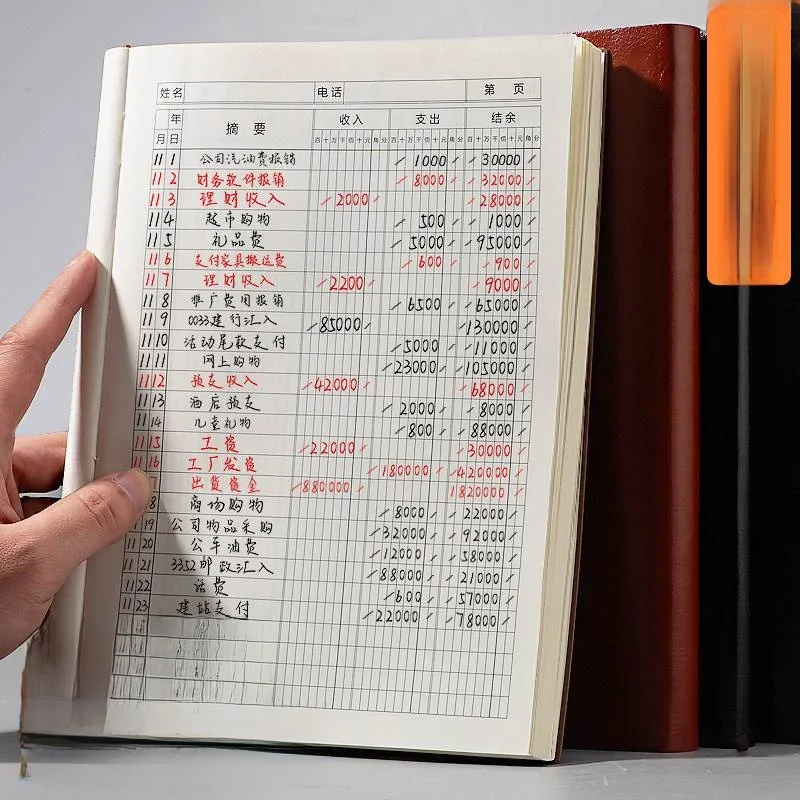 姓名 电话 第 页
年 摘要 收入 支出 结余
月 日 百十万千佰十元角分 百十万千佰十元角分 百十万千佰十元角分
11 1 公司汽油费报销 1000 30000
11 2 财务软件报销 8000 32000
11 3 理财收入 2000 28000
11 4 超市购物 500 1000
11 5 礼品费 5000 95000
11 6 支付家具搬运费 600 900
11 7 理财收入 2200 9000
11 8 推广费用报销 6500 65000
11 9 0033建行汇入 85000 130000
11 10 活动尾款支付 5000 11000
11 11 网上购物 23000 105000
11 12 预支收入 42000 68000
11 13 酒店预支 2000 8000
11 14 儿童礼物 800 88000
11 15 工资 22000 30000
11 16 工厂发货 180000 420000
7 出货资金 880000 1820000
8 商场购物 8000 22000
19 公司物品采购 32000 92000
11 20 公车油费 12000 58000
11 21 3352邮政汇入 88000 21000
11 22 话费 600 57000
11 23 建站支付 22000 78000